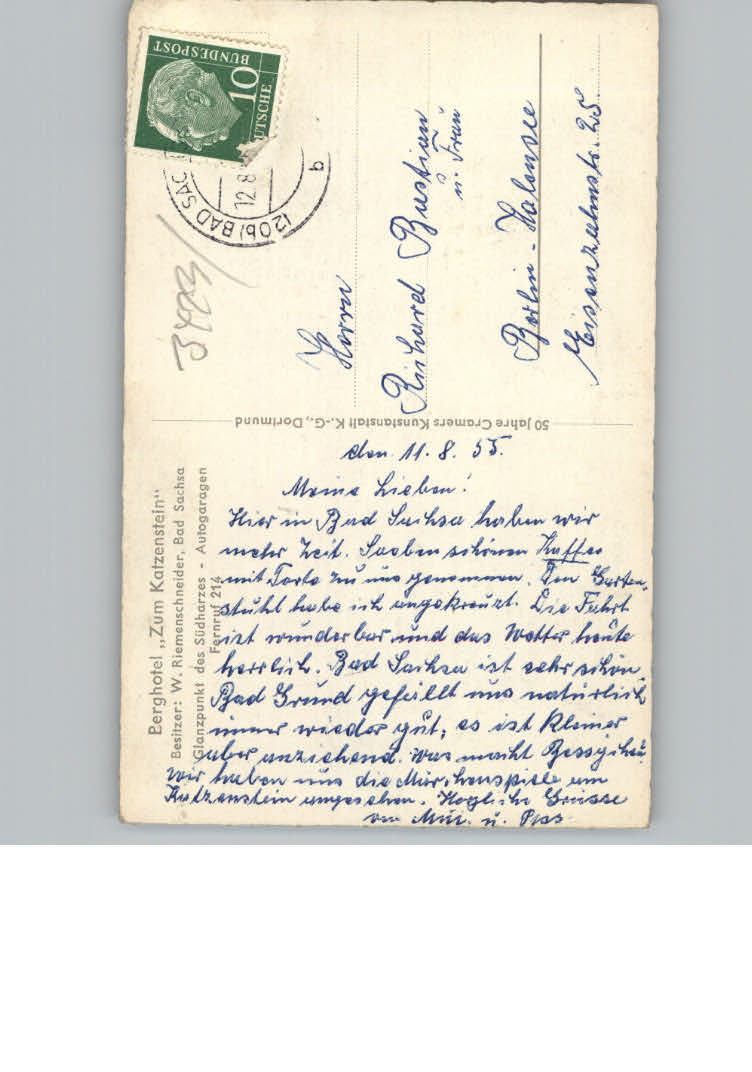 Berghotel „Zum Katzenstein"
Besitzer: W. Riemenschneider, Bad Sachsa
Glanzpunkt des Südharzes - Autogaragen
Fernruf 214
den 11. 8. 55.
Meine Lieben!
Hier in Bad Sachsa haben wir
mehr Zeit. Soeben schönen Kaffee
mit Torte zu uns genommen. Den Garten-
stuhl habe ich angekreuzt. Die Fahrt
ist wunderbar und das Wetter heute
herrlich. Bad Sachsa ist sehr schön
Bad Grund gefällt uns natürlich
immer wieder gut, es ist kleiner
aber anziehend. was macht
wir haben uns die Märchenspiele am
Katzenstein angesehen. Herzliche Grüsse
von u.
50 Jahre Cramers Kunstanstalt K.-G., Dortmund
DEUTSCHE
BUNDESPOST
10
(20b) BAD SAC
12.8
b
Herrn
Richard Bastian
u. Frau
Berlin-Halensee
Eisenzahnstr. 25